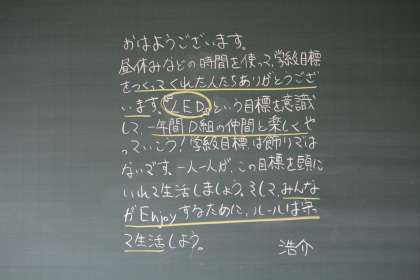 おはようございます。
昼休みなどの時間を使って、学級目標
をつくってくれた人たちありがとうござ
います。『LED』という目標を意識
して、一年間D組の仲間と楽しくや
っていこう！学級目標は飾りでは
ないです。一人一人が、この目標を頭に
いれて生活しましょう。そして、みんな
がEnjoyするために、ルールは守っ
て生活しよう。
浩介